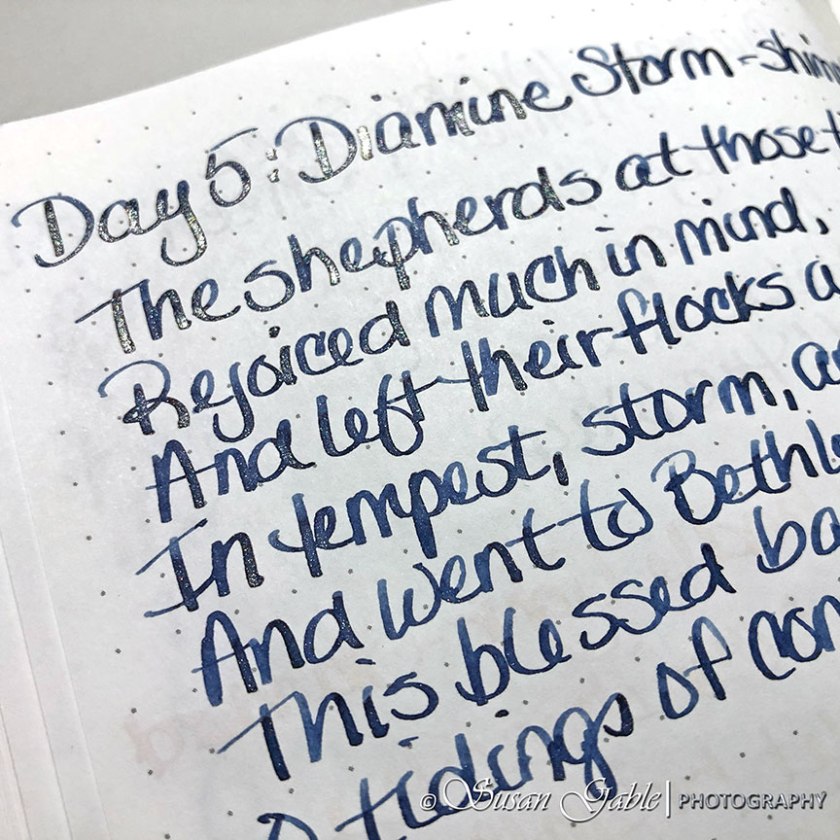 Day 5: Diamine Storm - shim
The shepherds at those t
Rejoiced much in mind,
And left their flocks a
In tempest, storm, a
And went to Bethl
This blessed ba
O tidings of com
© Susan Gable | PHOTOGRAPHY